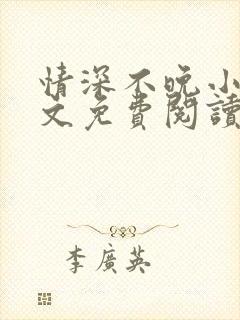 情深不晚小
文免費閱讀
李廣英